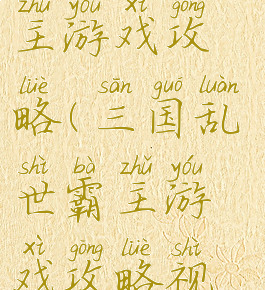 zhǔ yóu xì gōng
主游戏攻
lüè sān guó luàn
略(三国乱
shì bà zhǔ yóu
世霸主游
xì gōng lüè shì
戏攻略视